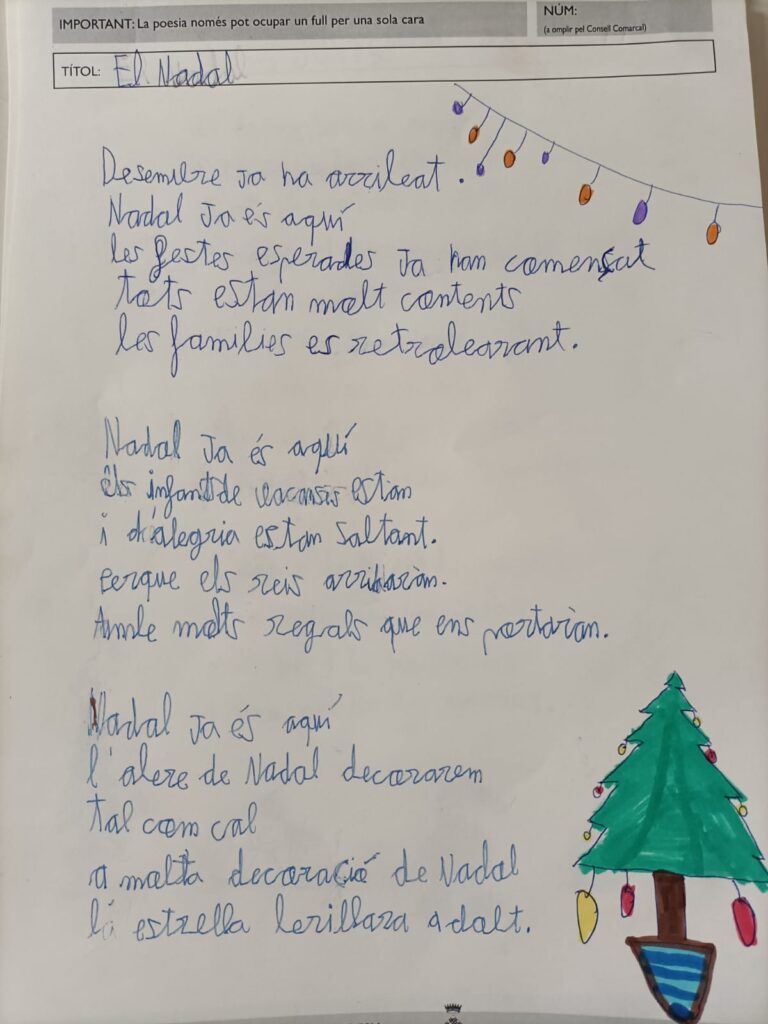 IMPORTANT: La poesia només pot ocupar un full per una sola cara
NÚM:
(a omplir pel Consell Comarcal)
TÍTOL: El Nadal
Desembre ja ha arribat.
Nadal ja és aquí
les festes esperades ja han comensat
tots estan molt contents
les families es retrobaran.
Nadal ja és aquí
els infants de vacansis estan
i d'alegria estan saltant.
perque els reis arribaràn.
Amb molts regals que ens portaràn.
Nadal ja és aquí
l'abre de Nadal decorarem
tal com cal
a molta decoració de Nadal
la estrella brillara a dalt.